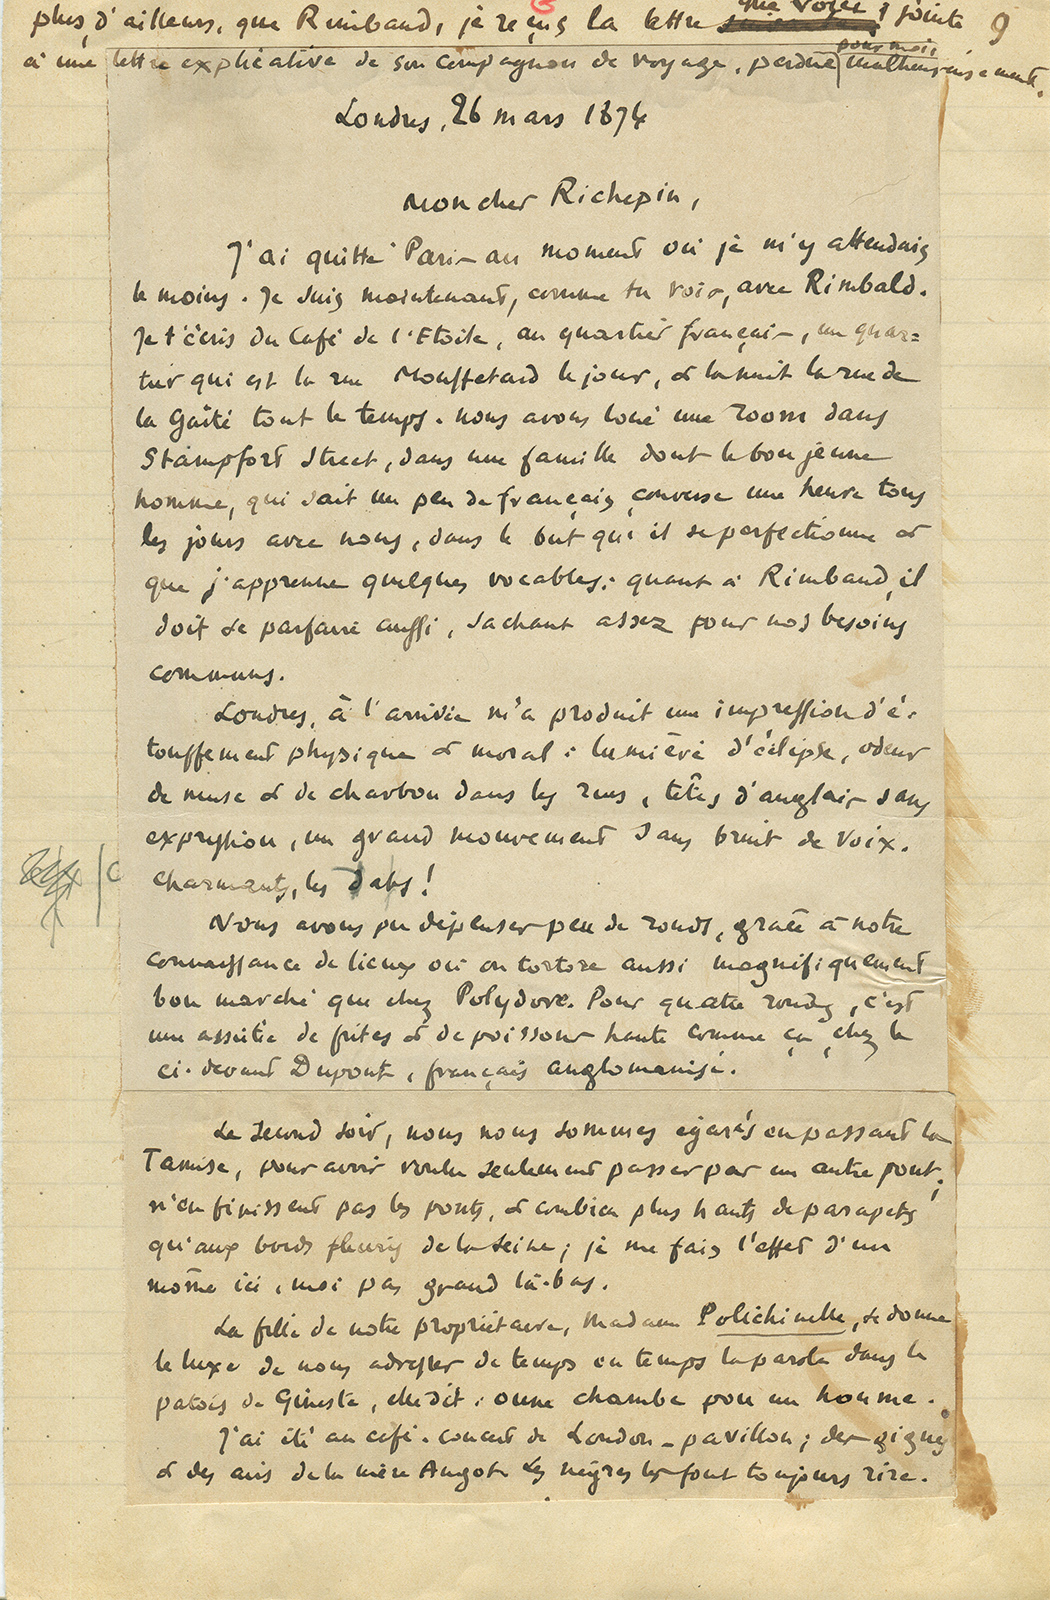 plus, d'ailleurs, que Rimbaud, je reçus la lettre que voici, jointe 9
à une lettre explicative de son compagnon de voyage, perdue pour moi, malheureusement.
Londres, 26 mars 1874
Mon cher Richepin,
J'ai quitté Paris au moment où je m'y attendais
le moins. Je suis maintenant, comme tu vois, avec Rimbald.
Je t'écris du Café de l'Etoile, au quartier français, un quar=
tier qui est la rue Mouffetard le jour, & la nuit la rue de
la Gaîté tout le temps. Nous avons loué une room dans
Stampfort Street, dans une famille dont le bon jeune
homme, qui sait un peu de français, converse une heure tous
les jours avec nous, dans le but qu'il se perfectionne &
que j'apprenne quelques vocables. quant à Rimbaud, il
doit se parfaire aussi, sachant assez pour nos besoins
communs.
Londres, à l'arrivée m'a produit une impression d'é-
touffement physique & moral : lumière d'éclipse, odeur
de muse & de charbon dans les rues, têtes d'anglais sans
expression, un grand mouvement sans bruit de voix.
Charmants, les dabs !
c
Nous avons pu dépenser peu de ronds, grâce à notre
connaissance de lieux où on tortore aussi magnifiquement
bon marché que chez Polydore. Pour quatre ronds, c'est
une assiétée de frites & de poissons haute comme ça chez le
ci-devant Dupont, français anglomanisé.
Le second soir, nous nous sommes égarés en passant la
Tamise, pour avoir voulu seulement passer par un autre pont ;
n'en finissent pas les ponts, & combien plus hauts de parapets
qu'aux bords fleuris de la Seine ; je me fais l'effet d'un
môme ici, moi pas grand là-bas.
La fille de notre propriétaire, Madame Polichinelle, se donne
le luxe de nous adresser de temps en temps la parole dans le
patois de Gineste, elle dit : oune chambe pou un homme.
J'ai été au café-concert de London-pavillon ; des gigues
& des airs de la mère Angot. Les nègres les font toujours rire.